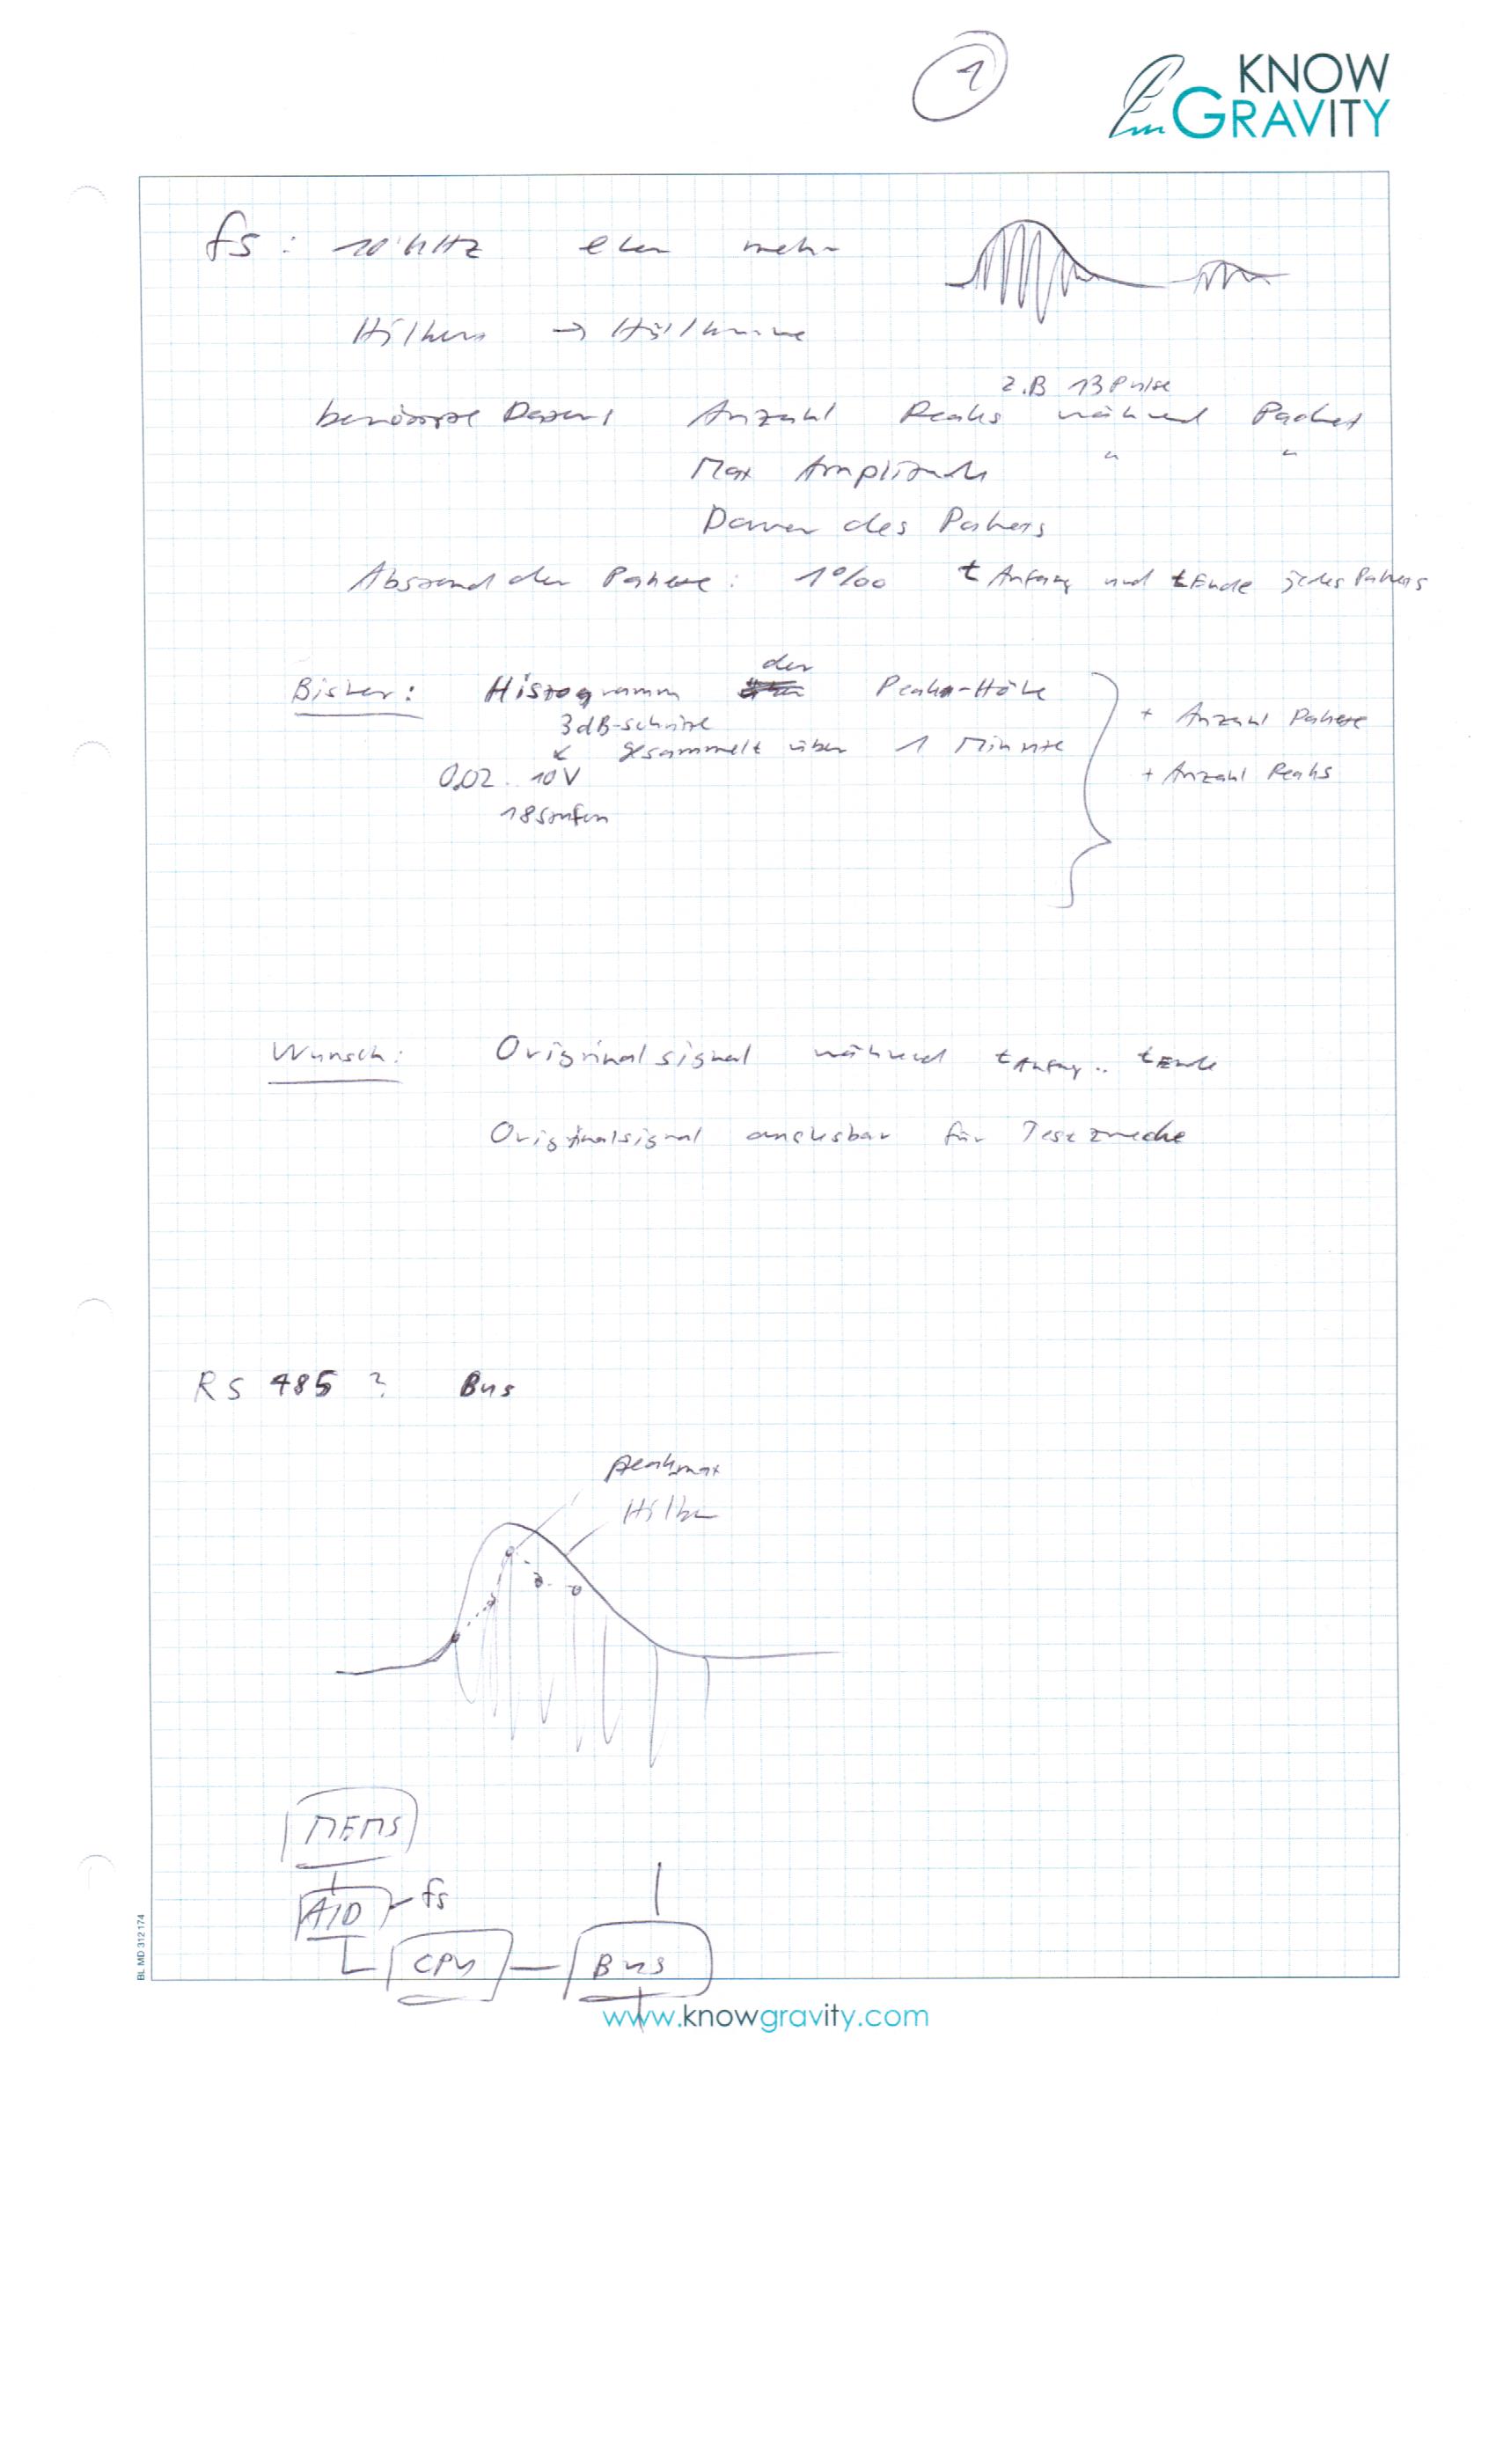 1
KNOW
GRAVITY
fs: 10 kHz eher mehr
Hilbert → Hüllkurve
z.B 13 Pulse
benötigte Daten: Anzahl Peaks während Packet
Max Amplitude " "
Dauer des Pakets
Abstand der Pakete: 1‰ t Anfang und t Ende jedes Pakets
der
Bisher: Histogramm Peak-Höhe
+ Anzahl Pakete
3dB-Schritte
gesammelt über 1 Minute
0,02 .. 10V
+ Anzahl Peaks
18 Stufen
Wunsch: Originalsignal während t Anfang .. t Ende
Originalsignal auslesbar für Testzwecke
RS 485 ? Bus
peakmax
Hilbert
MEMS
A/D fs
CPU Bus
BL MD 312174
www.knowgravity.com